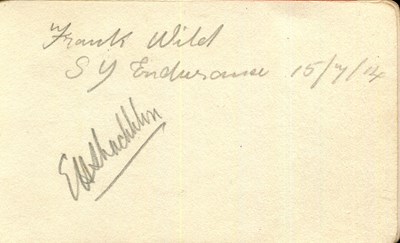 Frank Wild
S Y Endurance 15/7/14
EHShackleton